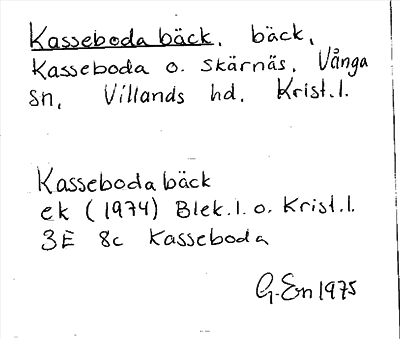 Kasseboda bäck, bäck,
Kasseboda o. Skärnäs, Vånga
sn, Villands hd. Krist.l.
Kasseboda bäck
ek (1974) Blek.l. o. Krist.l.
3E 8c Kasseboda
G. En 1975